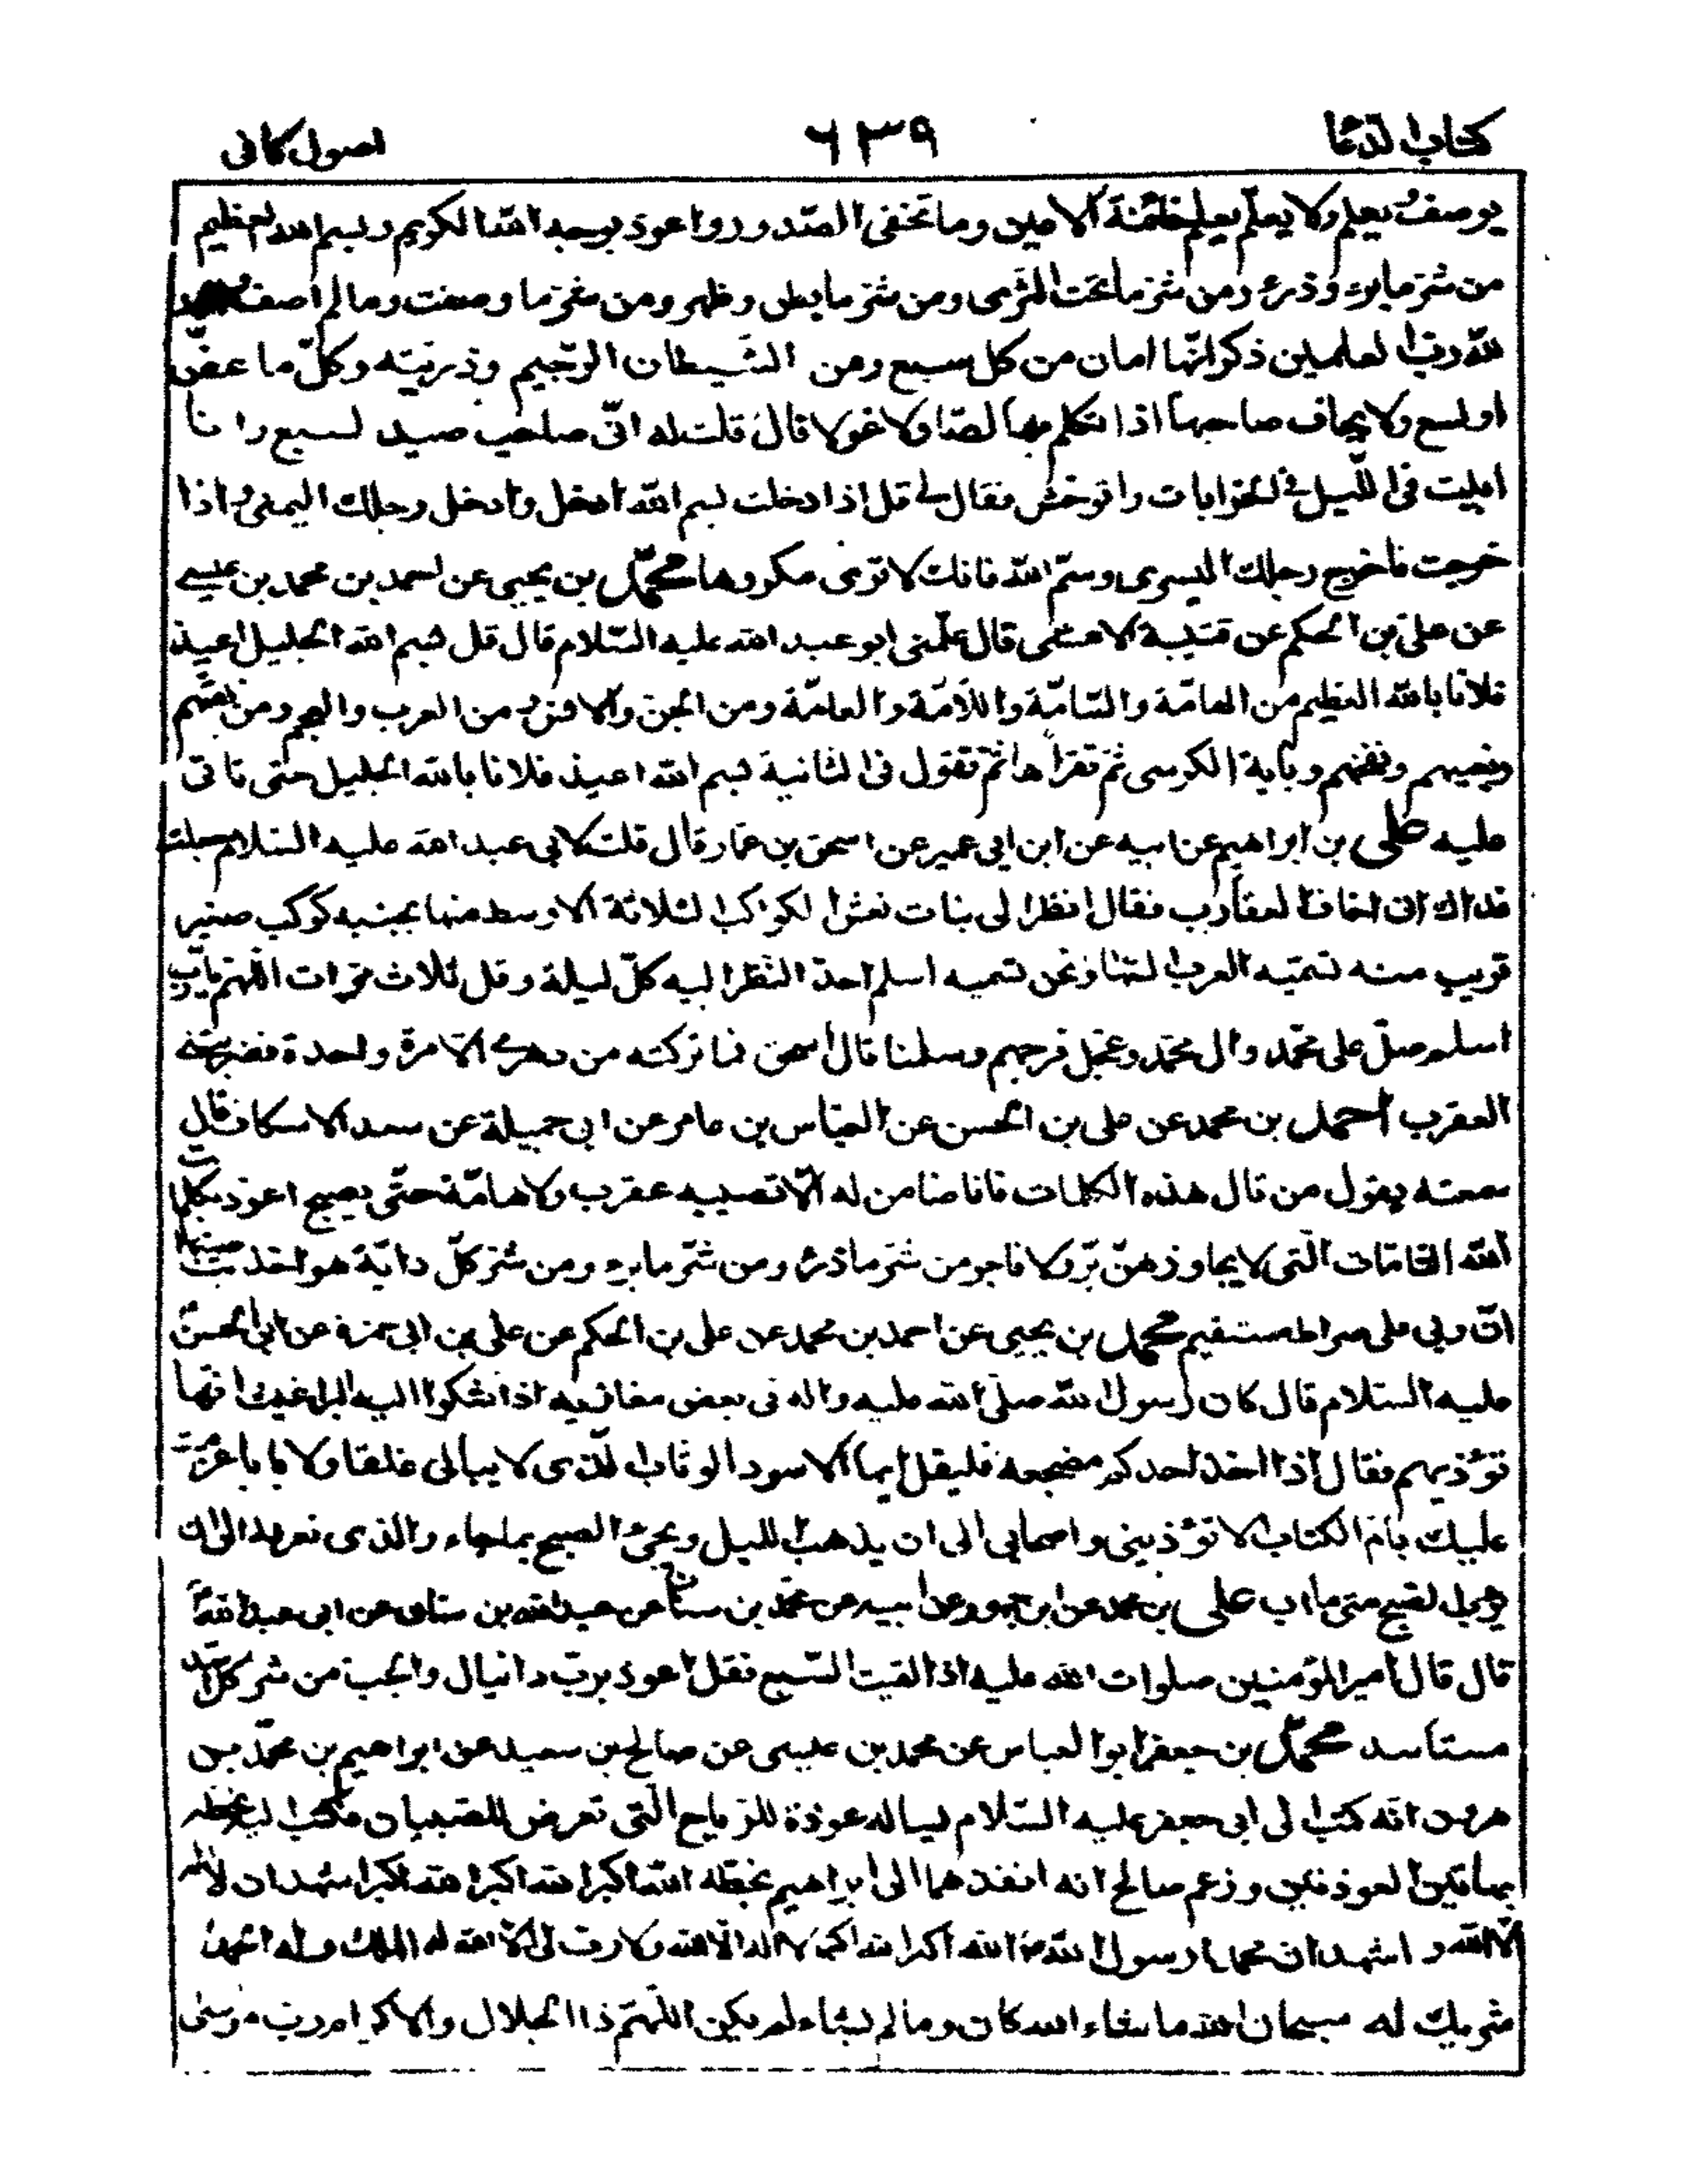 كتاب الدعا
٦٣٩
اصول كافى
يوصف يعلم ولا يعلّم يعلم خائنة الاعين وما تخفى الصّدور واعوذ بوجه الله الكريم وبسم الله العظيم
من شرّ ما برء وذرء ومن شرّ ما تحت الثرى ومن شرّ ما بطن وظهر ومن شرّ ما وصفت وما لم اصف
لله ربّ العلمين ذكر انّها امان من كل سبع ومن الشّيطان الرّجيم وذريّته وكلّ ما عضّ
او لسع ولا يخاف صاحبها اذا تكلم بها لصّا ولا غولا قال قلت له انّى صاحب صيد لسبع وانا
ابيت فى اللّيل فى الخرابات واتوحّش فقال لى قل اذا دخلت بسم الله ادخل وادخل رجلك اليمنى واذا
خرجت فاخرج رجلك اليسرى وسمّ الله فانك لا ترى مكروها محمّد بن يحيى عن احمد بن محمد بن عيسى
عن علىّ بن الحكم عن قتيبة الاعشى قال علّمنى ابو عبد الله عليه السّلام قال قل بسم الله الجليل اعيذ
فلانا بالله العظيم من الهامّة والسّامّة واللّامّة والعامّة ومن الجنّ والانس ومن العرب والعجم ومن نفثهم
وبغيهم ونفخهم وباية الكرسى ثمّ تقرأها ثمّ تقول فى الثانية بسم الله اعيذ فلانا بالله الجليل حتى تاتى
عليه على بن ابراهيم عن ابيه عن ابن ابى عمير عن اسحق بن عمار قال قلت لابى عبد الله عليه السّلام جعلت
فداك انى اخاف العقارب فقال انظر الى بنات نعش الكواكب الثلاثة الاوسط منها بجنبه كوكب صغير
قريب منه تسمّيه العرب السّها ونحن نسميه اسلم احدّ النّظر اليه كلّ ليلة وقل ثلاث مرّات اللّهمّ يا ربّ
اسلم صلّ على محمّد وال محمّد وعجّل فرجهم وسلمنا قال اسحق فما تركته من دهرى الّا مرّة واحدة فضربتنى
العقرب احمد بن محمد عن على بن الحسن عن العبّاس بن عامر عن ابى جميلة عن سعد الاسكاف قال
سمعته يقول من قال هذه الكلمات فانا ضامن له الّا تصيبه عقرب ولا هامّة حتّى يصبح اعوذ بكلمات
الله التّامّات الّتى لا يجاوزهنّ برّ ولا فاجر من شرّ ما ذرء ومن شرّ ما برء ومن شرّ كلّ دابّة هو اخذ بناصيتها
انّ ربى على صراط مستقيم محمد بن يحيى عن احمد بن محمد عن على بن الحكم عن على بن ابى حمزة عن ابى الحسن
عليه السّلام قال كان رسول الله صلّى الله عليه واله فى بعض مغازيه اذا شكوا اليه البراغيث انها
تؤذيهم فقال اذا اخذ احدكم مضجعه فليقل ايها الاسود الوثاب الّذى لا يبالى غلقا ولا بابا عزمت
عليك بامّ الكتاب الّا تؤذينى واصحابى الى ان يذهب اللّيل ويجئ الصبح بما جاء والذى نعرفه الى ان
يؤب الصبح متى ما اب على بن محمد عن ابن جمهور عن ابيه عن محمّد بن سنان عن عبد الله بن سنان عن ابى عبد الله
قال قال امير المؤمنين صلوات الله عليه اذا لقيت السّبع فقل اعوذ بربّ دانيال والجبّ من شر كل اسد
مستأسد محمّد بن جعفر ابو العباس عن محمد بن عيسى عن صالح بن سعيد عن ابراهيم بن محمّد بن
هرون انّه كتب الى ابى جعفر عليه السّلام يساله عوذة للرّياح الّتى تعرض للصّبيان فكتب اليه بخطه
بهاتين العوذتين وزعم صالح انه انفذهما الى ابراهيم بخطّه الله اكبر الله اكبر الله اكبر اشهد ان لا اله
الّا الله و اشهد ان محمدا رسول الله الله اكبر الله اكبر لا اله الّا الله ولا ربّ لى الّا الله له الملك وله الحمد
شريك له سبحان الله ما شاء الله كان وما لم يشاء لم يكن اللّهمّ ذا الجلال والاكرام ربّ موسى